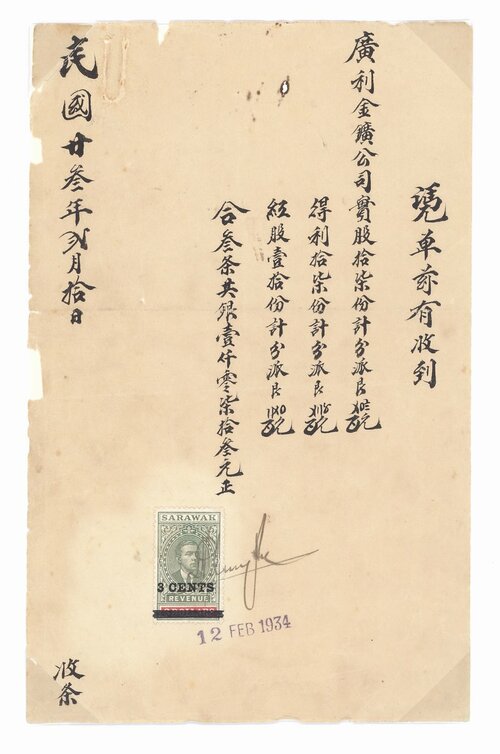 憑单茲有收到
廣利金鑛公司實股拾柒份計分派艮
得利拾柒份計分派艮
紅股壹拾份計分派艮
合叁条共銀壹仟零柒拾叁元正
民國廿叁年弍月拾日
收条
SARAWAK
3 CENTS
REVENUE
12 FEB 1934